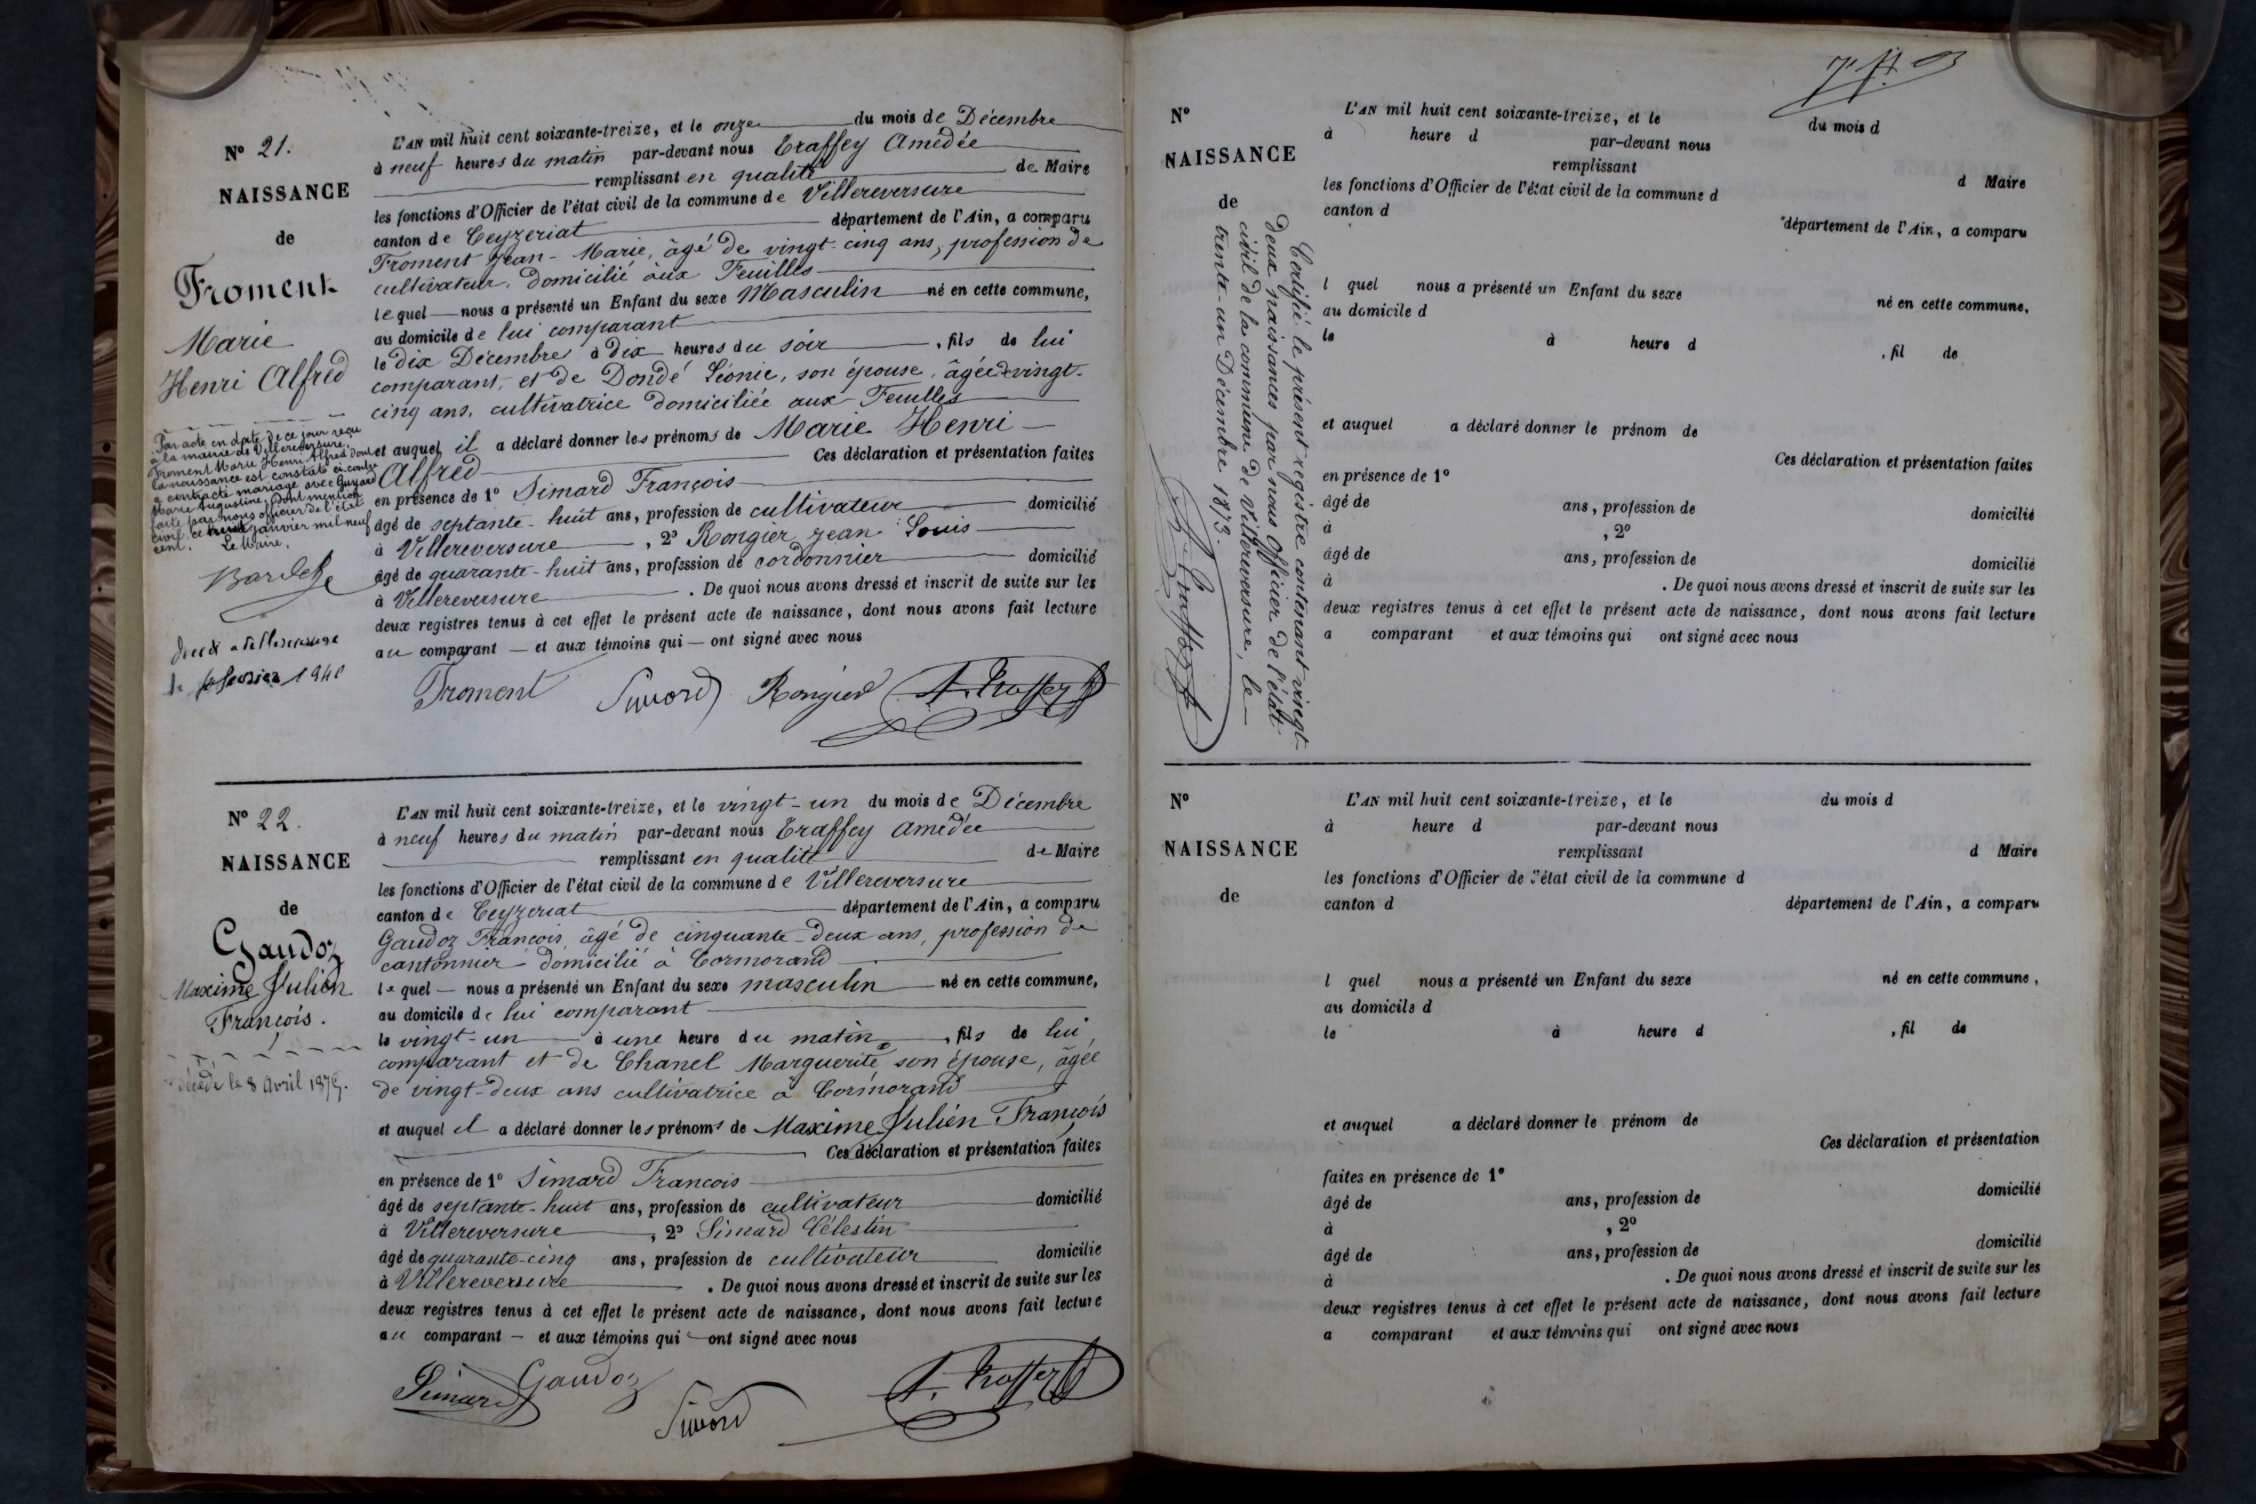 N° 21.
NAISSANCE
de
Froment
Marie
Henri Alfred
Par acte en date de ce jour reçu
à la mairie de Villereversure,
Froment Marie Henri Alfred dont
la naissance est constatée ci-contre
a contracté mariage avec Guyard
Marie Augustine, Dont mention
faite par nous officier de l'état
civil ce janvier mil neuf
cent. Le Maire,
décédé à Villereversure
le février 1940
L'AN mil huit cent soixante-treize, et le onze du mois de Décembre
à neuf heures du matin par-devant nous Traffey Amédée
remplissant en qualité de Maire
les fonctions d'Officier de l'état civil de la commune de Villereversure
canton de Ceyzeriat département de l'Ain, a comparu
Froment Jean-Marie, âgé de vingt-cinq ans, profession de
cultivateur, domicilié aux Feuilles
lequel nous a présenté un Enfant du sexe Masculin né en cette commune,
au domicile de lui comparant
le dix Décembre à dix heures du soir, fils de lui
comparant, et de Dondé Léonie, son épouse, âgée de vingt-
cinq ans, cultivatrice domiciliée aux Feuilles
et auquel il a déclaré donner les prénoms de Marie Henri
Alfred Ces déclaration et présentation faites
en présence de 1° Simard François
âgé de septante-huit ans, profession de cultivateur domicilié
à Villereversure, 2° Rongier Jean Louis
âgé de quarante-huit ans, profession de cordonnier domicilié
à Villereversure. De quoi nous avons dressé et inscrit de suite sur les
deux registres tenus à cet effet le présent acte de naissance, dont nous avons fait lecture
au comparant et aux témoins qui ont signé avec nous
Froment Simard Rongier A. Traffey
N° 22.
NAISSANCE
de
Gaudoz
Maxime Julien
François.
décédé le 8 Avril 1875.
L'AN mil huit cent soixante-treize, et le vingt-un du mois de Décembre
à neuf heures du matin par-devant nous Traffey Amédée
remplissant en qualité de Maire
les fonctions d'Officier de l'état civil de la commune de Villereversure
canton de Ceyzeriat département de l'Ain, a comparu
Gaudoz François, âgé de cinquante-deux ans, profession de
cantonnier domicilié à Cormorand
lequel nous a présenté un Enfant du sexe masculin né en cette commune,
au domicile de lui comparant
le vingt-un à une heure du matin, fils de lui
comparant et de Chanel Marguerite son épouse, âgée
de vingt-deux ans cultivatrice à Cormorand
et auquel il a déclaré donner les prénoms de Maxime Julien François
Ces déclaration et présentation faites
en présence de 1° Simard Francois
âgé de septante-huit ans, profession de cultivateur domicilié
à Villereversure, 2° Simard Célestin
âgé de quarante-cinq ans, profession de cultivateur domicilié
à Villereversure. De quoi nous avons dressé et inscrit de suite sur les
deux registres tenus à cet effet le présent acte de naissance, dont nous avons fait lecture
au comparant et aux témoins qui ont signé avec nous
Simard Gaudoz Simard A. Traffey
N°
NAISSANCE
de
Certifié le présent registre contenant vingt-
deux naissances par nous Officier de l'état
civil de la commune de Villereversure, le
trente-un Décembre 1873.
A. Traffey
L'AN mil huit cent soixante-treize, et le du mois d
à heure d par-devant nous
remplissant d Maire
les fonctions d'Officier de l'état civil de la commune d
canton d département de l'Ain, a comparu
l quel nous a présenté un Enfant du sexe né en cette commune,
au domicile d
le à heure d , fil de
et auquel a déclaré donner le prénom de
Ces déclaration et présentation faites
en présence de 1°
âgé de ans, profession de domicilié
à , 2°
âgé de ans, profession de domicilié
à . De quoi nous avons dressé et inscrit de suite sur les
deux registres tenus à cet effet le présent acte de naissance, dont nous avons fait lecture
a comparant et aux témoins qui ont signé avec nous
N°
NAISSANCE
de
L'AN mil huit cent soixante-treize, et le du mois d
à heure d par-devant nous
remplissant d Maire
les fonctions d'Officier de l'état civil de la commune d
canton d département de l'Ain, a comparu
l quel nous a présenté un Enfant du sexe né en cette commune,
au domicile d
le à heure d , fil de
et auquel a déclaré donner le prénom de
Ces déclaration et présentation
faites en présence de 1°
âgé de ans, profession de domicilié
à , 2°
âgé de ans, profession de domicilié
à . De quoi nous avons dressé et inscrit de suite sur les
deux registres tenus à cet effet le présent acte de naissance, dont nous avons fait lecture
a comparant et aux témoins qui ont signé avec nous